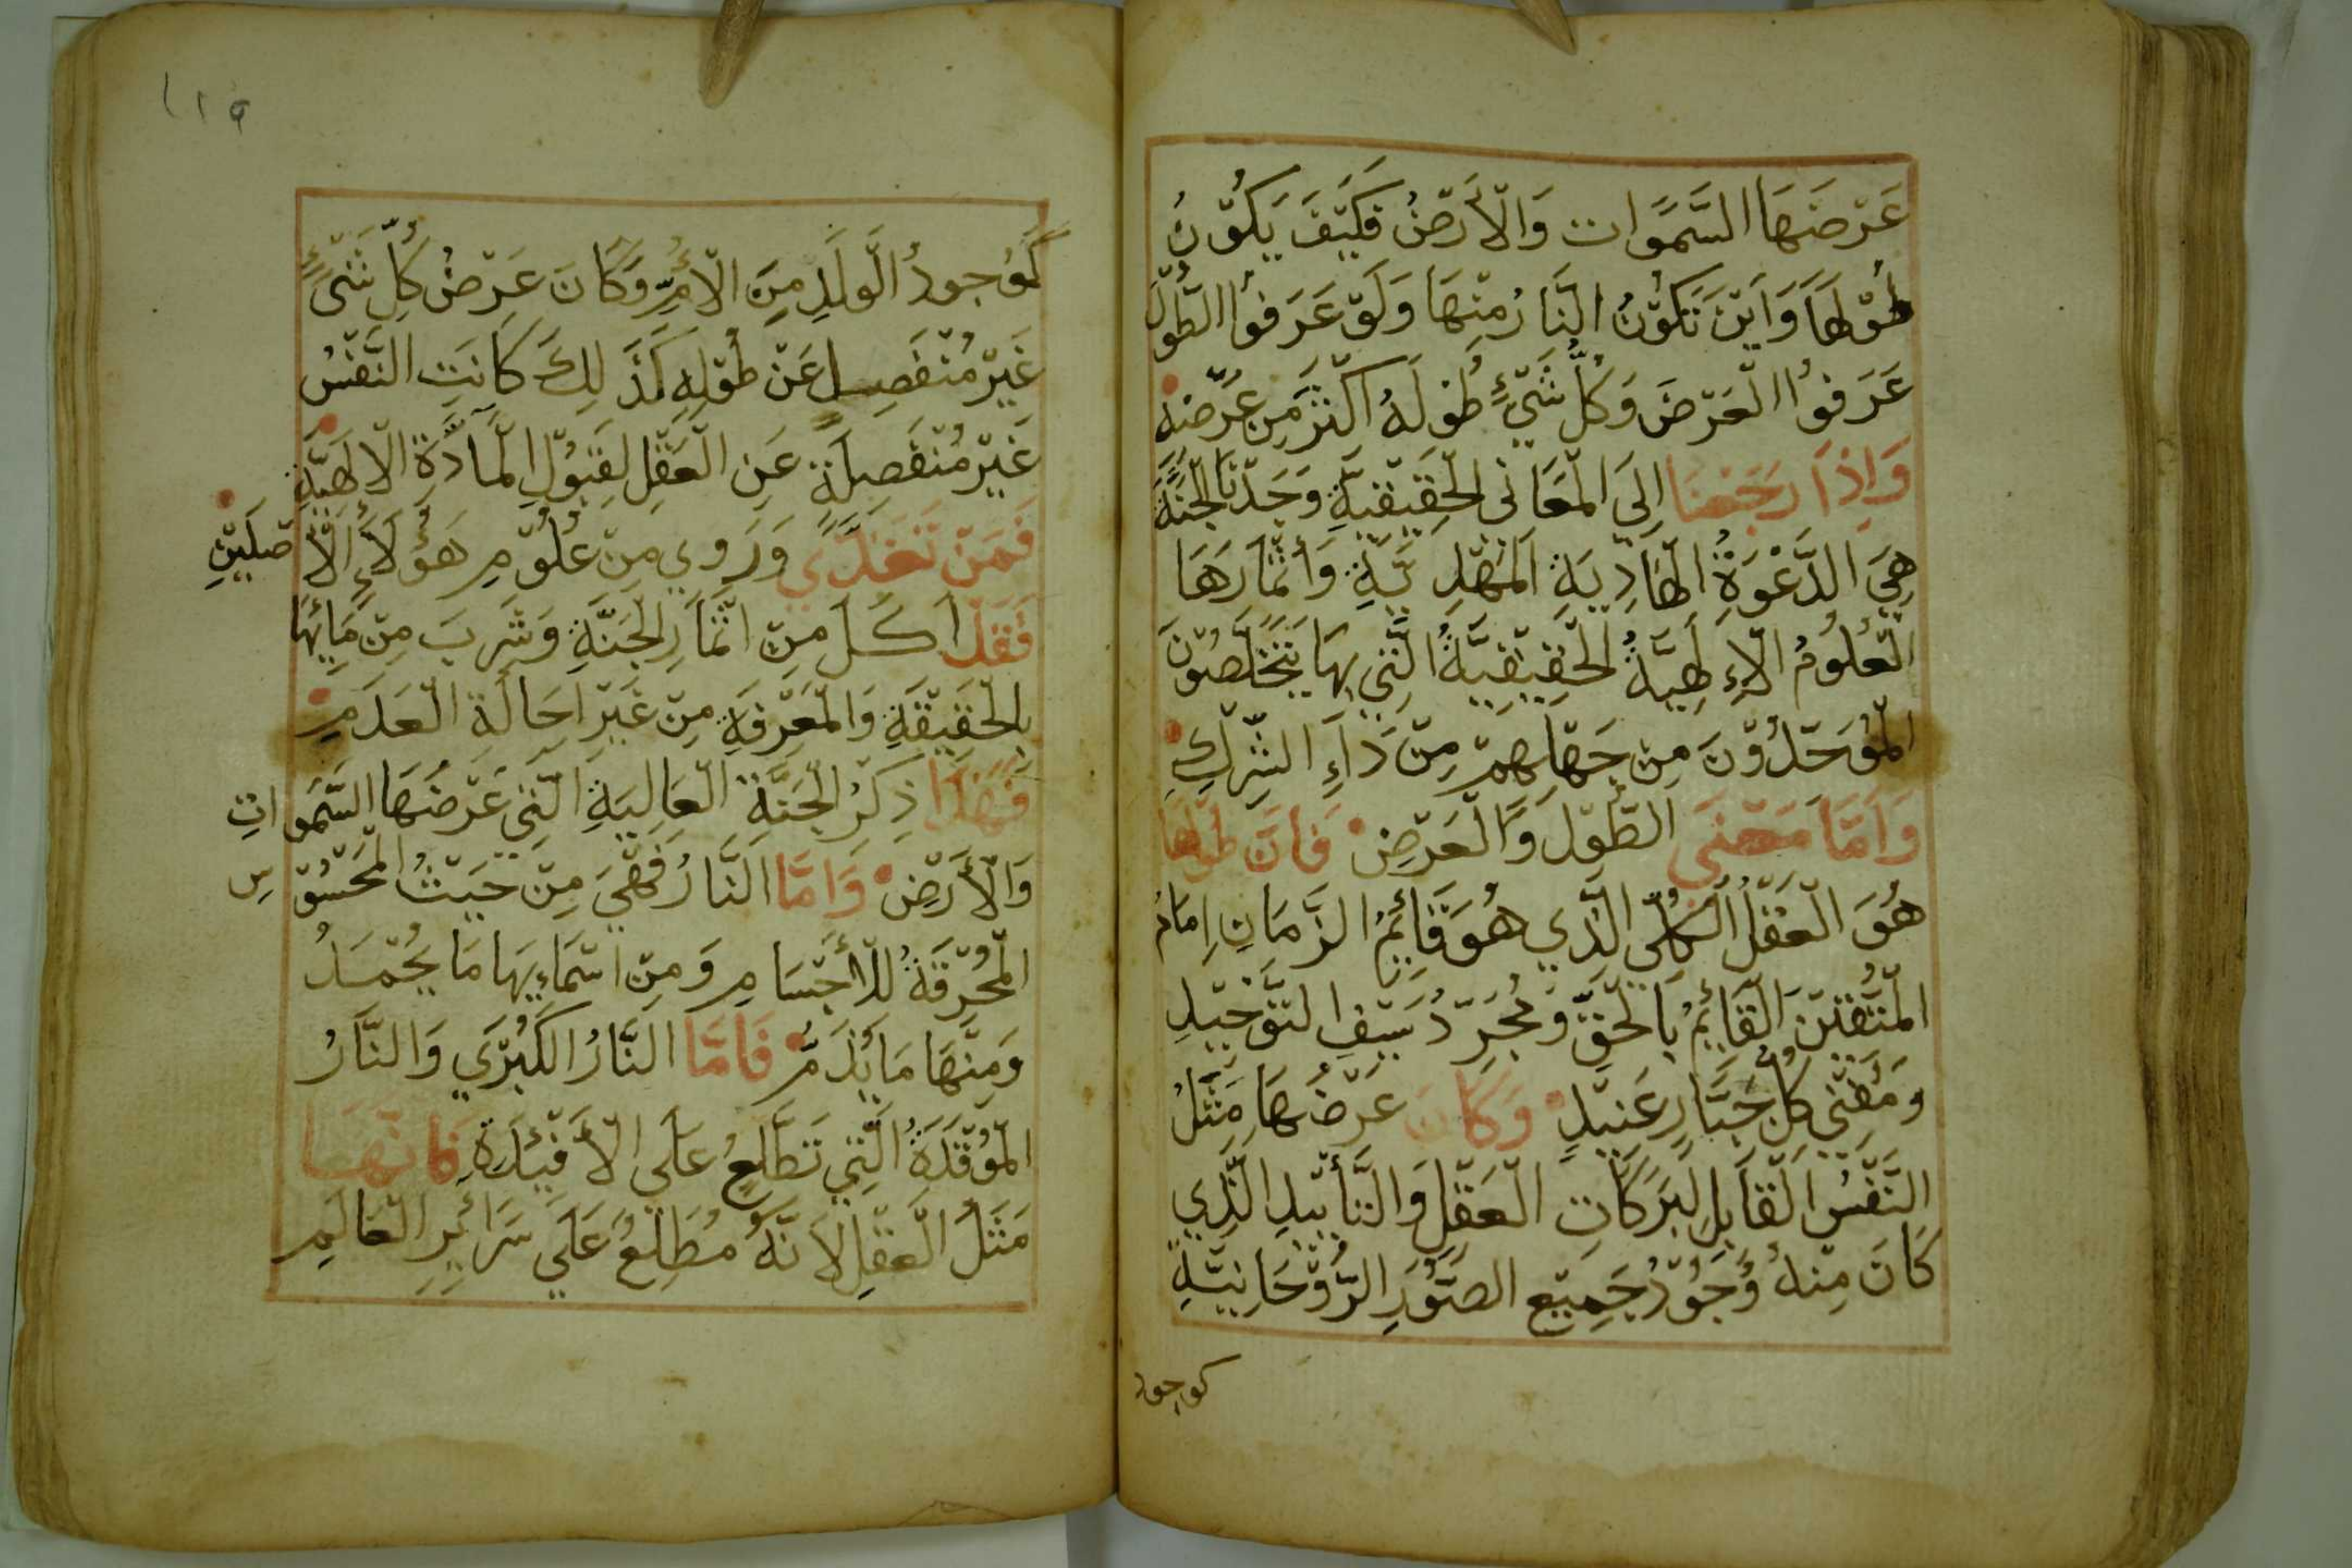 عَرْضُهَا السَّمَوَات وَالْأَرْضُ فَكَيْفَ يَكُوْنُ
طُوْلهَا وَايْنَ تَكُوْنُ النَّارُ مِنْهَا وَلَوْ عَرَفوُا الطُّوْلَ
عَرَفوُا الْعَرْضَ وَكُلُّ شَيْءٍ طُولَهُ اكْثَرُ مِنْ عَرْضِهِ
وَاِذَا رَجَعْنَا اِلَى الْمَعَانى الْحَقِيْقِيَّةِ وَجَدْنَا الْجَنَّةَ
هِيَ الدَّعْوَةُ الْهَادِيَةِ الْمَهْدِيَّةِ وَأَثْمَارَهَا
الْعُلُومُ الْاِلَهِيَّةُ الْحَقِيْقِيَّةُ الَّتِي بِهَا يَتَخَلَّصُوْنَ
الْمُوَحِّدُوْنَ مِنْ جَهْلِهِمْ مِنْ دَاَءِ الشِّرْكِ
وَاَمَّا مَعْنَى الطُّوْل وَالْعَرْضِ فَاِنَّ طُولَها
هُوَ الْعَقْلُ الْكُلّي الَّذي هُوَ قَائِمُ الزَّمَانِ اِمَامُ
الْمُتَّقِيْنَ الْقَائِمُ بِالْحَقّ وَمُجَرِّدُ سَيْفِ التَّوْحِيْدِ
وَمُفْنِي كُلّ جَبَّارٍ عَنِيْدٍ وَكَانَ عَرْضُهَا مَثَلُ
النَّفْسُ الْقَابِلِ لِبَرَكَاتِ الْعَقْلِ وَالتَّأْيِيْدِ الَّذِي
كَانَ مِنْهُ وُجُوْدُ جَمِيْعِ الصُّوَرِ الرُّوْحَانِيَّةِ
كوجود
٢١٩
كَوُجودُ الْوَلَدِ مِنَ الْاُمِّ وَكَانَ عَرْضُ كُلِّ شَيْءٍ
غَيْرِ مُنْفَصِلٍ عَنْ طُوْلِهِ كَذَلِكَ كَانَتِ النَّفْسُ
غَيْرِ مُنْفَصِلَةٍ عَنِ الْعَقْلِ لِقَبُوْلِ الْمَادَّةِ الْاِلَهِيَّةِ
فَمَنْ تَغَذَّي وَرَوِي مِنْ عُلُوْمِ هَؤُلَاَءِ الْأَصْلَيْنِ
فَقَدْ اَكَلَ مِنْ اثْمَارِ الْجَنَّةِ وَشَرِبَ مِنْ مَائِهَا
بِالْحَقِيْقَةِ وَالْمَعْرِفَةِ مِنْ غَيْرِ اَحَالَةِ الْعَدَمِ
فَهَذَا ذِكْرُ الْجَنَّةِ الْعَالِيَةِ الَّتِي عَرْضُهَا السَّمَواتِ
وَالْأَرْضِ وَاَمَّا النَّارُ فَهْيَ مِنْ حَيْثُ الْمَحْسُوْسِ
الْمُحْرِقَةُ لِلْأَجْسَامِ وَمِنْ اَسْمَاءِيهَا مَا يُحْمَدُ
وَمِنْهَا مَا يُذَمُّ فَاَمَّا النَّارُ الكُبْرَي وَالنَّارُ
الْمُوْقَدَةُ الَّتِي تَطَّلِعُ عَلَي الْأَفْئِدَةِ فَاِنَّهَا
مَثَلُ الْعَقْلِ لاَنَّهُ مُطَلِعُ عَلَي سَرَائِرِ الْعَالَمِ